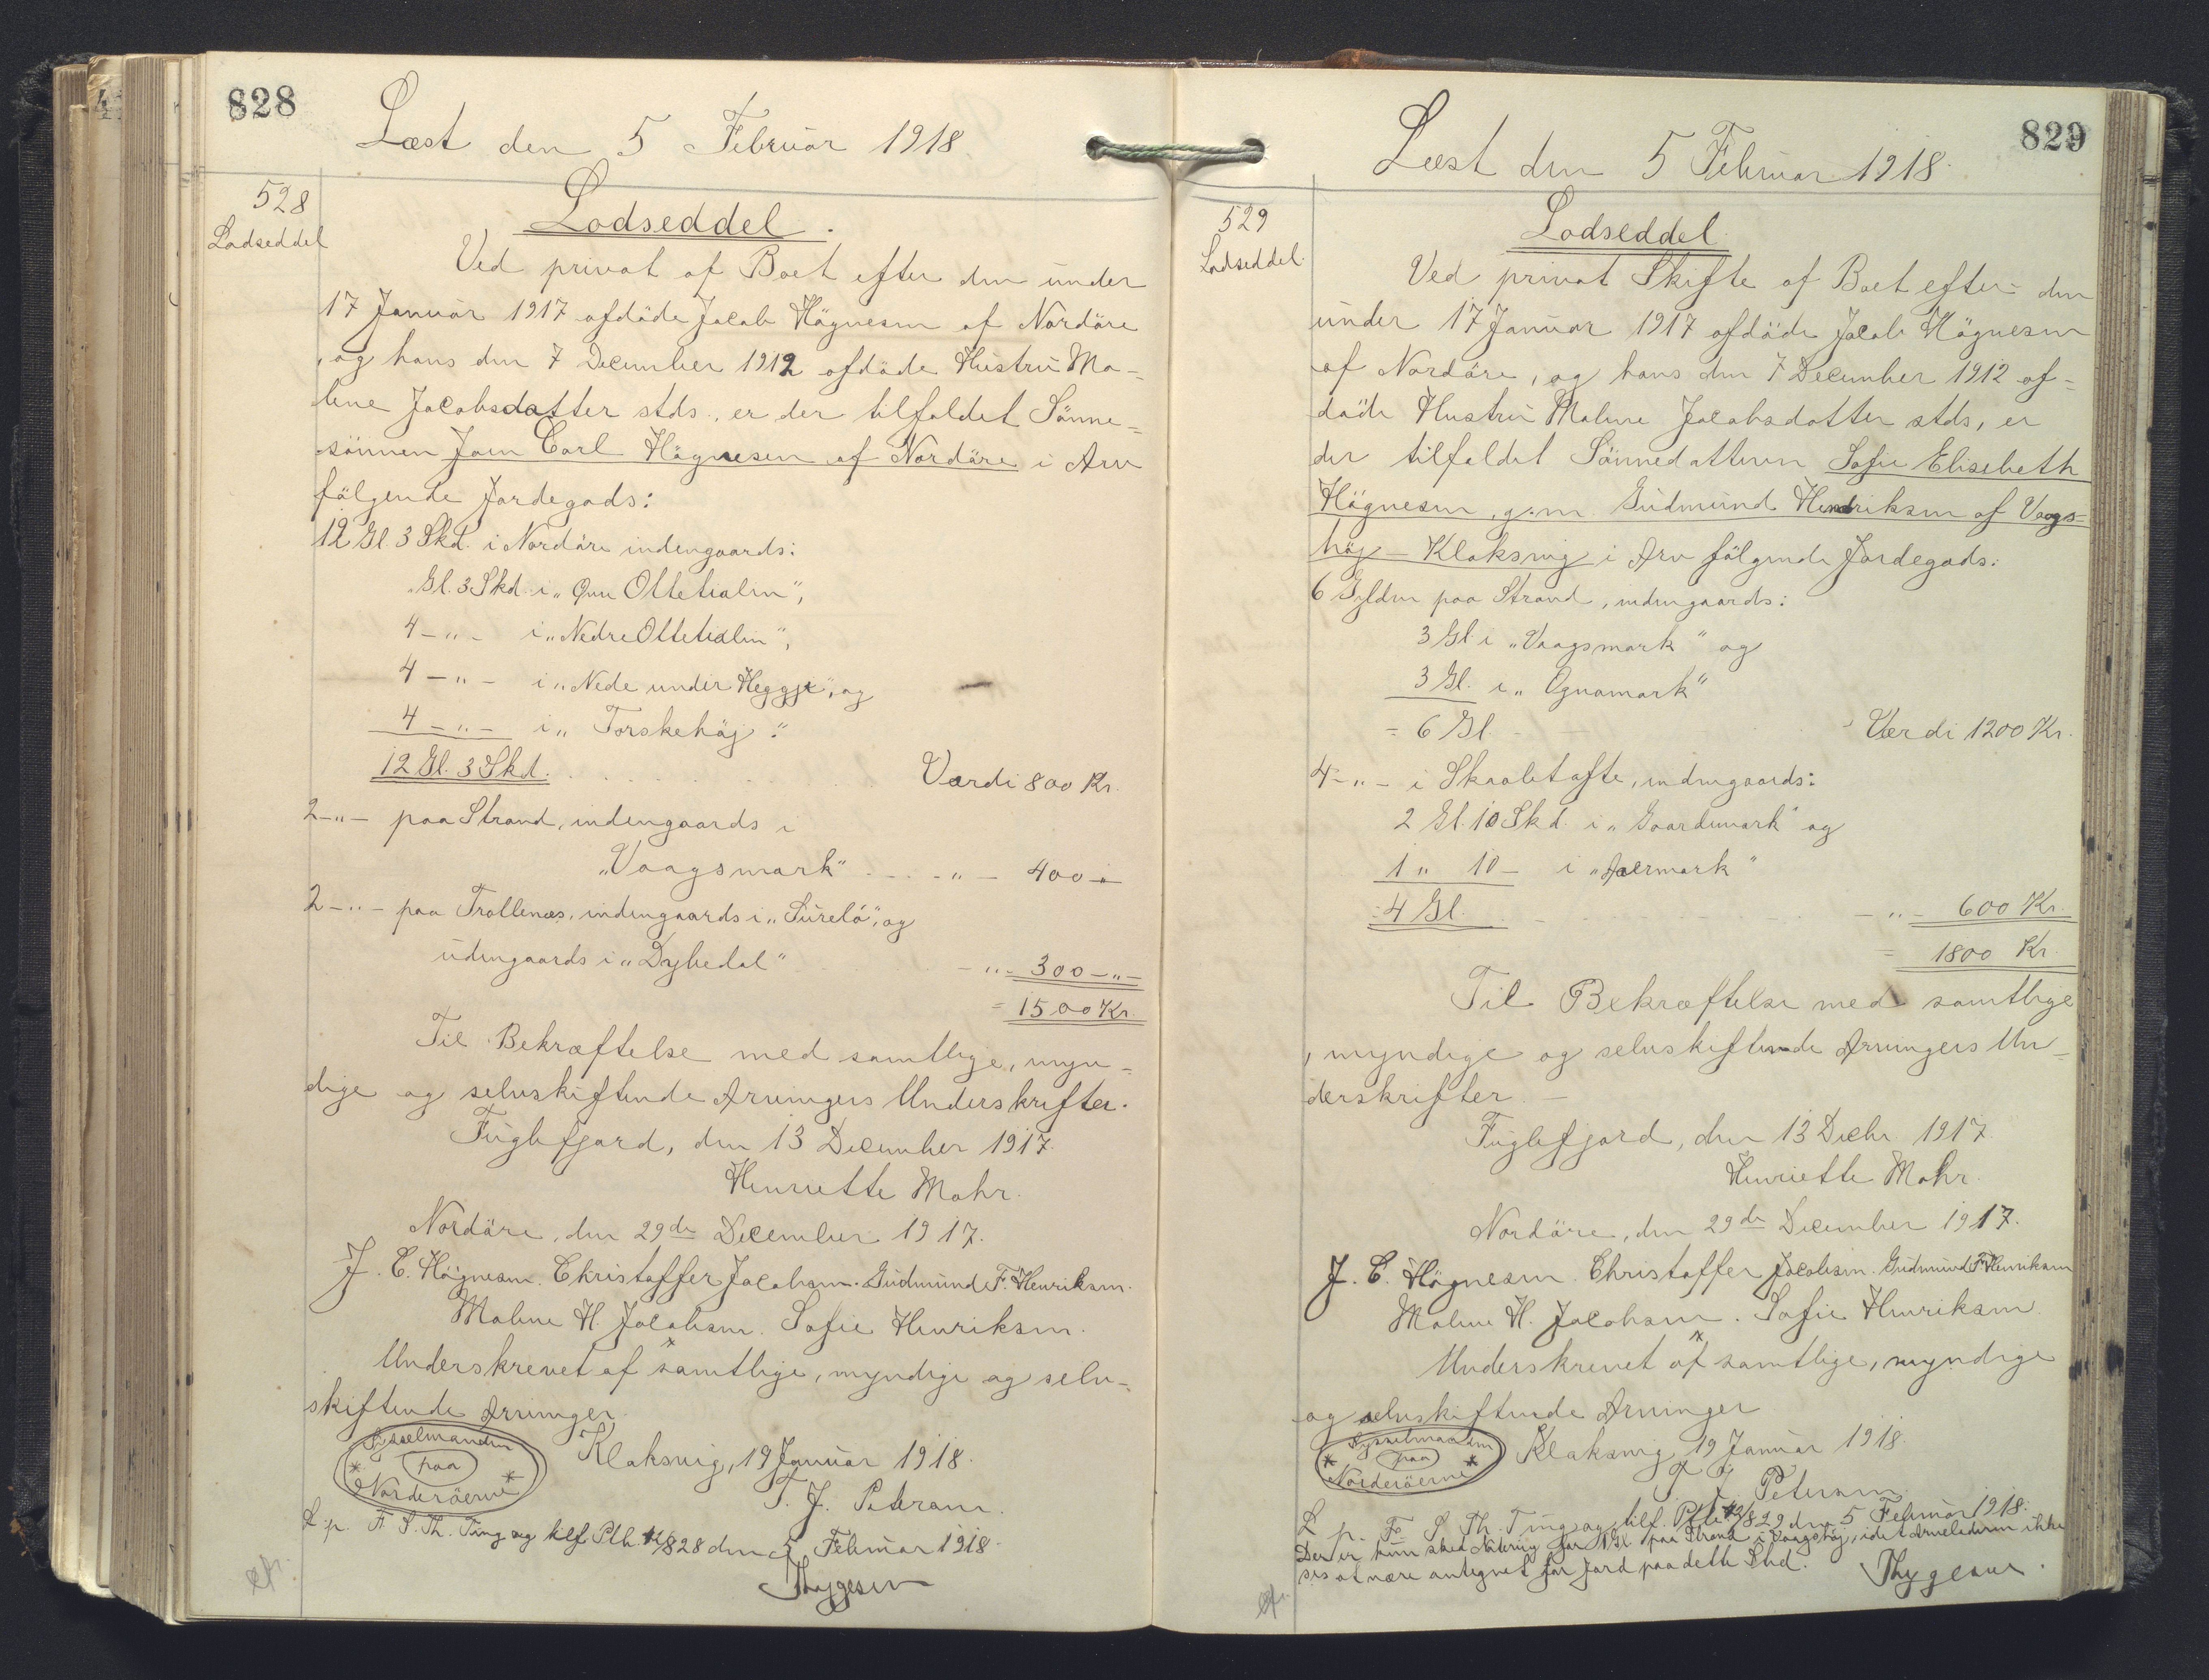 828
Læst den 5 Februar 1918.
528
Lodseddel
Lodseddel.
Ved privat af Boet efter den under
17 Januar 1917 afdöde Jacob Högnesen af Nordöre
, og hans den 7 December 1912 afdöde Hustru Ma-
lene Jacobsdatter stds., er der tilfaldet Sönne-
sönnen Joen Carl Högnesen af Nordöre i Arv
fölgende Jordegods:
12 Gl. 3 Skd. i Nordöre indengaards:
Gl. 3 Skd. i „Ovre Ottetialin“,
4 - „ - i „Nedre Ottetialin“,
4 - „ - i „Nede under Heggje“, og
4 - „ - i „Torskehöj“.
12 Gl. 3 Skd. Værdi 800 Kr.
2 - „ - paa Strand, indengaards i
„Vaagsmark“ - „ - 400 -
2 - „ - paa Trollenæs, indengaards i „Surelö“, og
udengaards i „Dybedal“ - „ - 300 - „ -
= 1500 Kr.
Til Bekræftelse med samtlige, myn-
dige og selvskiftende Arvingers Underskrifter.
Fuglefjord, den 13 December 1917.
Henriette Mohr.
Nordöre, den 29de December 1917.
J. C. Högnesen. Christoffer Jacobsen. Gudmund F. Henriksen.
Malene H. Jacobsen. Sofie Henriksen.
Underskrevet af samtlige, myndige og selv-
skiftende Arvinger.
Sysselmanden
paa
Norderöerne
Klaksvig, 19 Januar 1918.
T. J. Petersen.
L. p. F. S. Th. Ting og tilf. Ptb. 828 den 5 Februar 1918.
Thygesen
829
Læst den 5 Februar 1918.
529
Lodseddel.
Lodseddel
Ved privat Skifte af Boet efter den
under 17 Januar 1917 afdöde Jacob Högnesen
af Nordöre, og hans den 7 December 1912 af-
döde Hustru Malene Jacobsdatter stds, er
der tilfaldet Sönnedatteren Sofie Elisebeth
Högnesen, g. m. Gudmund Hendriksen af Vaags-
höj - Klaksvig i Arv fölgende Jordegods:
6 Gylden paa Strand, indengaards:
3 Gl i „Vaagsmark“ og
3 Gl. i „Ognamark“
= 6 Gl. Værdi 1200 Kr.
4 - „ - i Skaaletofte, indengaards:
2 Gl. 10 Skd. i „Gaardemark“ og
1 „ 10 - i „Aaermark“
4 Gl. - „ - 600 Kr.
= 1800 Kr.
Til Bekræftelse med samtlige
, myndige og selvskiftende Arvingers Un-
derskrifter. -
Fuglefjord, den 13 Decbr. 1917
Henriette Mohr.
Nordöre, den 29de December 1917.
J. C. Högnesen. Christoffer Jacobsen. Gudmund F. Henriksen
Malene H. Jacobsen. Sofie Henriksen.
Underskrevet af samtlige, myndige
og selvskiftende Arvinger
Sysselmanden
paa
Norderöerne
Klaksvig, 19 Januar 1918.
T. J. Petersen
L. p. F. S. Th. Ting og tilf. Ptb. 829 den 5 Februar 1918.
Der er kun sket Notering for Gl. paa Strand i Vaagshöj, idet Arveladeren ikke
ses at være antegnet for Jord paa dette Sted. Thygesen.